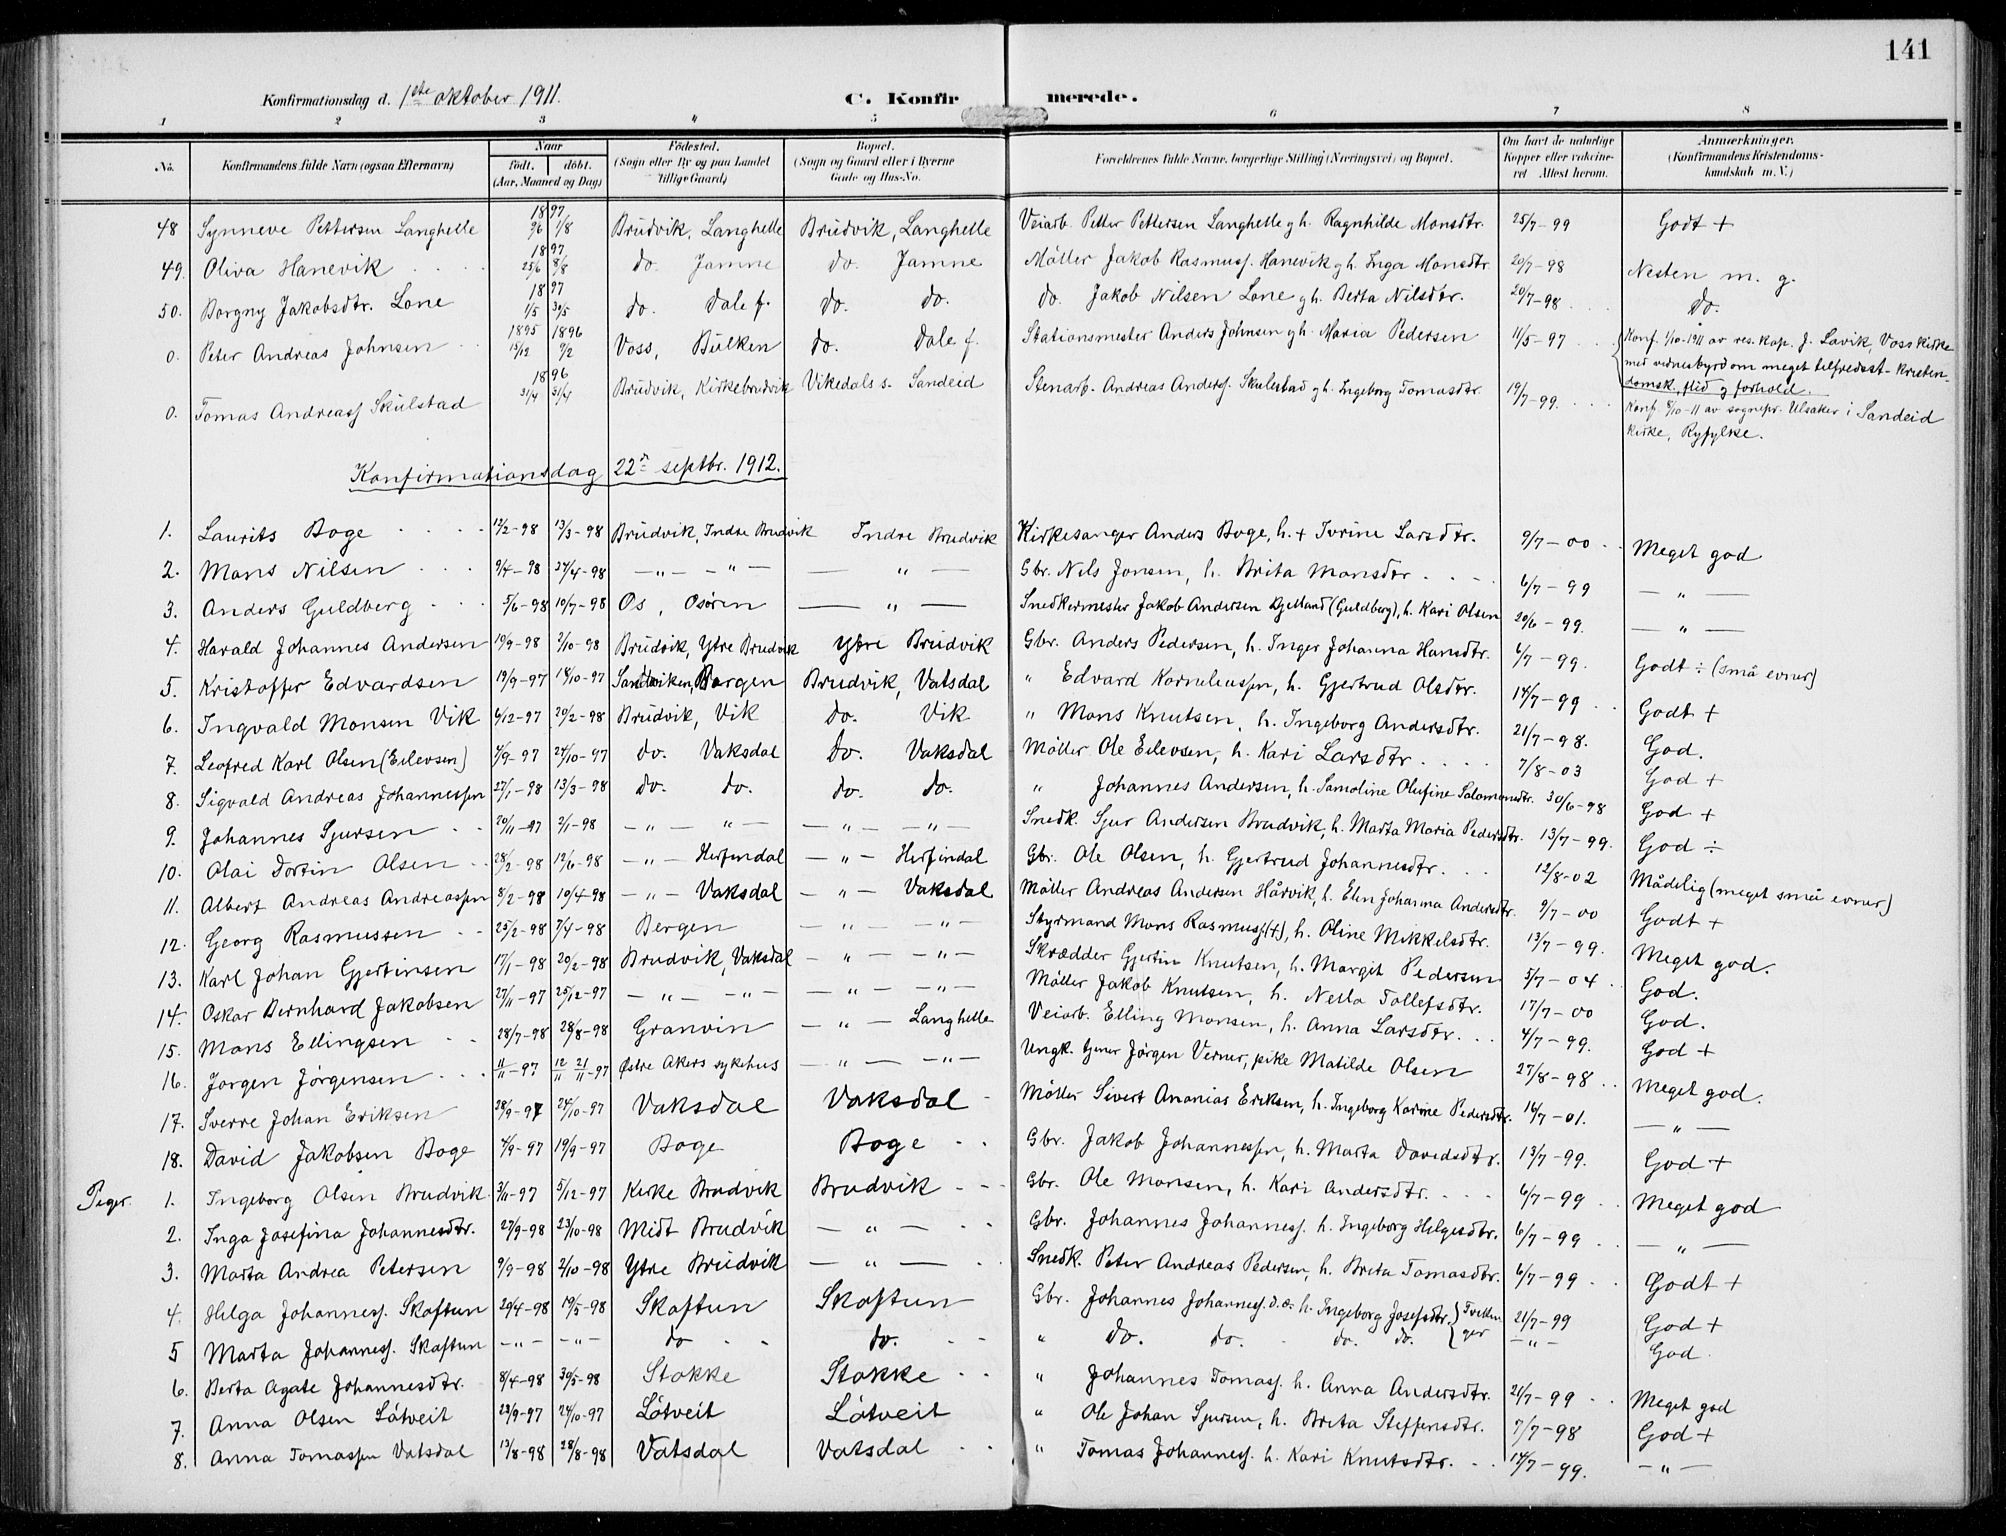 141
Konfirmationsdag d. 1ste oktober 1911. C. Konfirmerede.
1 2 3 4 5 6 7 8
No. Konfirmandens fulde Navn (ogsaa Efternavn) Naar født. døbt. (Aar, Maaned og Dag) Fødested. (Sogn eller By og paa Landet tillige Gaard) Bopæl. (Sogn og Gaard eller i Byerne Gade og Hus-No. Forældrenes fulde Navne, borgerlige Stilling (Næringsvei) og Bopæl. Om havt de naturlige Kopper eller vakcineret Attest herom. Anmærkninger. (Konfirmandens Kristendomskundskab m. V.)
48 Synneve Pettersen Langhelle 1897 9/6 1/8 Brudvik, Langhelle Brudvik, Langhelle Veiarb. Petter Pettersen Langhelle g h. Ragnhilde Monsdtr. 25/7-99 Godt +
49. Oliva Hanevik 1897 25/6 8/8 do. Jamne do. Jamne Møller Jakob Rasmuss. Hanevik g h. Inga Monsdtr. 20/7-98 Nesten m. g.
50. Borgny Jakobsdtr. Lone 1897 1/5 30/5 do. Dale f. do. do. do. Jakob Nilsen Lone g h. Berta Nilsdtr. 20/7-98 do.
0. Peter Andreas Johnsen 1895 15/12 1896 9/2 Voss, Bulken do. Dale f. Stationsmester Anders Johnsen g h. Maria Pedersen 11/5-97 Konf. 1/10-1911 av res. kap. J. Lavik, Voss kirke med vidnesbyrd om meget tilfredsst. kristendomsk., flid og forhold.
0. Tomas Andreass Skulstad 1896 3/4 31/4 Brudvik, Kirkebrudvik Vikedals s. Sandeid Stenarb. Andreas Anderss. Skulestad g h. Ingeborg Tomasdtr. 19/7-99. Konf. 8/10-11 av sognepr. Ulsaker i Sandeid kirke, Ryfylke.
Konfirmationsdag 22n septbr. 1912.
1. Laurits Boge 12/2-98 13/3-98 Brudvik, Indre Brudvik Indre Brudvik Kirkesanger Anders Boge, h. + Ivrine Larsdtr. 9/7-00 Meget god
2. Mons Nilsen 9/4-98 24/4-98 -"- -"- -"- Gbr. Nils Jonsen, h. Brita Monsdtr. 6/7-99 -"-
3. Anders Guldberg 5/6-98 10/7-98 Os, Osøren -"- Snedkermester Jakob Andersen Kjelland (Guldberg), h. Kari Olsen 20/6-99. -"-
4. Harald Johannes Andersen 19/9-98 2/10-98 Brudvik, Ytre Brudvik Ytre Brudvik Gbr. Anders Pedersen, h. Inger Johanna Hansdtr. 6/7-99. Godt ÷ (små evner)
5. Kristoffer Edvardsen 19/9-97 18/10-97 Sandviken, Bergen Brudvik, Vatsdal " Edvard Korneliussen, h. Gjertrud Olsdtr. 14/7-99 Godt +
6. Ingvald Monsen Vik 6/12-97 20/2-98 Brudvik, Vik do. Vik " Mons Knutsen, h. Ingeborg Andersdtr. 21/7-98. God.
7. Leofred Karl Olsen (Eilevsen) 4/9-97 24/10-97 do. Vaksdal do. Vaksdal Møller Ole Eilevsen, h. Kari Larsdtr 7/8-03 God +
8. Sigvald Andreas Johannessen 27/1-98 13/3-98 do. do. do. do. " Johannes Andersen, h. Samoline Olufine Salomonsdtr. 30/6-98 God +
9. Johannes Sjursen 20/11-97 2/1-98 -"- -"- -"- -"- Snedk. Sjur Andersen Brudvik, h. Marta Maria Pedersdtr. 13/7-99. God ÷
10. Olai Tortin Olsen 28/2-98 12/6-98 -"- Herfindal -"- Herfindal Gbr. Ole Olsen, h. Gjertrud Johannesdtr. 12/8-02 Mådelig (meget små evner)
11. Albert Andreas Andreassen 8/2-98 10/4-98 -"- Vaksdal -"- Vaksdal Møller Andreas Andersen Hårvik, h. Elen Johanna Andersdtr. 9/7-00 Godt +
12. Georg Rasmussen 25/2-98 7/4-98 Bergen -"- -"- Styrmand Mons Rasmuss (+), h. Oline Mikkelsdtr. 13/7-99. Meget god.
13. Karl Johan Gjertinsen 17/1-98 20/2-98 Brudvik, Vaksdal -"- -"- Skrædder Gjertin Knutsen, h. Margit Pedersen 5/7-04 God.
14. Oskar Bernhard Jakobsen 27/11-97 25/12-97 -"- -"- -"- -"- Møller Jakob Knutsen, h. Nella Tollefsdtr. 17/7-00 God.
15. Mons Ellingsen 28/7-98 28/8-98 Granvin -"- Langhelle Veiarb. Elling Monsen, h. Anna Larsdtr. 4/7-99. God +
16. Jorgen Jørgensen 11/11-97 12/11 21/11-97 Østre Akers sykehus -"- -"- Ungk. tjener Jørgen Verner, pike Matilde Olsen 27/8-98 Meget god.
17. Sverre Johan Eriksen 28/9-97 24/10-97 Vaksdal Vaksdal Møller Sivert Ananias Eriksen, h. Ingeborg Karine Pedersdtr. 16/7-01. -"-
18. David Jakobsen Boge 4/9-97 19/9-97 Boge Boge Gbr. Jakob Johannessen, h. Marta Davidsdtr. 13/7-99. God +
Piger. 1. Ingeborg Olsen Brudvik 3/11-97 5/12-97 Kirke Brudvik Brudvik Gbr. Ole Monsen, h. Kari Andersdtr. 6/7-99 Meget god
2. Inga Josefina Johannesdtr. 27/9-98 23/10-98 Midt Brudvik -"- Gbr. Johannes Johanness. h. Ingeborg Helgesdtr. 6/7-99 -"-
3. Marta Andrea Petersen 9/9-98 2/10-98 Ytre Brudvik -"- Snedk. Peter Andreas Pedersen, h. Brita Tomasdtr. 6/7-99 Godt +
4. Helga Johanness. Skaftun 20/4-98 19/5-98 Skaftun Skaftun Gbr. Johannes Johanness. d.æ. h. Ingeborg Josefsdtr. { Tvillinger 21/7-99 God +
5 Marta Johanness. Skaftun -"- -"- do do. " do. do. do. do. -"- God
6. Berta Agate Johannesdtr. 8/4-98 30/5-98 Stokke Stokke " Johannes Tomass. h. Anna Andersdtr. 21/7-99 Meget god
7. Anna Olsen Låtveit 23/9-97 24/10-97 Låtveit Låtveit " Ole Johan Sjursen, h. Brita Steffensdtr. 7/7-98 God +
8. Anna Tomassen Vatsdal 13/8-98 28/8-98 Vatsdal Vatsdal " Tomas Johanness. h. Kari Knutsdtr. 14/7-99. -"-